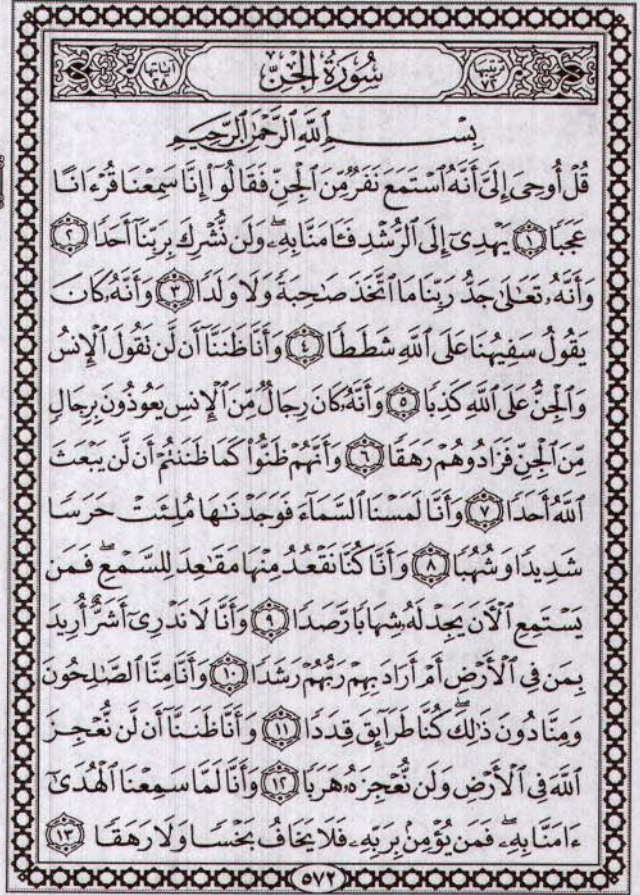 ترتيبها ٧٢ سُورَةُ الْجِنِّ آياتها ٢٨
بِسْمِ ٱللَّهِ ٱلرَّحْمَٰنِ ٱلرَّحِيمِ
قُلْ أُوحِىَ إِلَىَّ أَنَّهُ ٱسْتَمَعَ نَفَرٌ مِّنَ ٱلْجِنِّ فَقَالُوٓا۟ إِنَّا سَمِعْنَا قُرْءَانًا
عَجَبًا ١ يَهْدِىٓ إِلَى ٱلرُّشْدِ فَـَٔامَنَّا بِهِۦ ۖ وَلَن نُّشْرِكَ بِرَبِّنَآ أَحَدًا ٢
وَأَنَّهُۥ تَعَٰلَىٰ جَدُّ رَبِّنَا مَا ٱتَّخَذَ صَٰحِبَةً وَلَا وَلَدًا ٣ وَأَنَّهُۥ كَانَ
يَقُولُ سَفِيهُنَا عَلَى ٱللَّهِ شَطَطًا ٤ وَأَنَّا ظَنَنَّآ أَن لَّن تَقُولَ ٱلْإِنسُ
وَٱلْجِنُّ عَلَى ٱللَّهِ كَذِبًا ٥ وَأَنَّهُۥ كَانَ رِجَالٌ مِّنَ ٱلْإِنسِ يَعُوذُونَ بِرِجَالٍ
مِّنَ ٱلْجِنِّ فَزَادُوهُمْ رَهَقًا ٦ وَأَنَّهُمْ ظَنُّوا۟ كَمَا ظَنَنتُمْ أَن لَّن يَبْعَثَ
ٱللَّهُ أَحَدًا ٧ وَأَنَّا لَمَسْنَا ٱلسَّمَآءَ فَوَجَدْنَٰهَا مُلِئَتْ حَرَسًا
شَدِيدًا وَشُهُبًا ٨ وَأَنَّا كُنَّا نَقْعُدُ مِنْهَا مَقَٰعِدَ لِلسَّمْعِ ۖ فَمَن
يَسْتَمِعِ ٱلْـَٔانَ يَجِدْ لَهُۥ شِهَابًا رَّصَدًا ٩ وَأَنَّا لَا نَدْرِىٓ أَشَرٌّ أُرِيدَ
بِمَن فِى ٱلْأَرْضِ أَمْ أَرَادَ بِهِمْ رَبُّهُمْ رَشَدًا ١٠ وَأَنَّا مِنَّا ٱلصَّٰلِحُونَ
وَمِنَّا دُونَ ذَٰلِكَ ۖ كُنَّا طَرَآئِقَ قِدَدًا ١١ وَأَنَّا ظَنَنَّآ أَن لَّن نُّعْجِزَ
ٱللَّهَ فِى ٱلْأَرْضِ وَلَن نُّعْجِزَهُۥ هَرَبًا ١٢ وَأَنَّا لَمَّا سَمِعْنَا ٱلْهُدَىٰٓ
ءَامَنَّا بِهِۦ ۖ فَمَن يُؤْمِنۢ بِرَبِّهِۦ فَلَا يَخَافُ بَخْسًا وَلَا رَهَقًا ١٣
٥٧٢